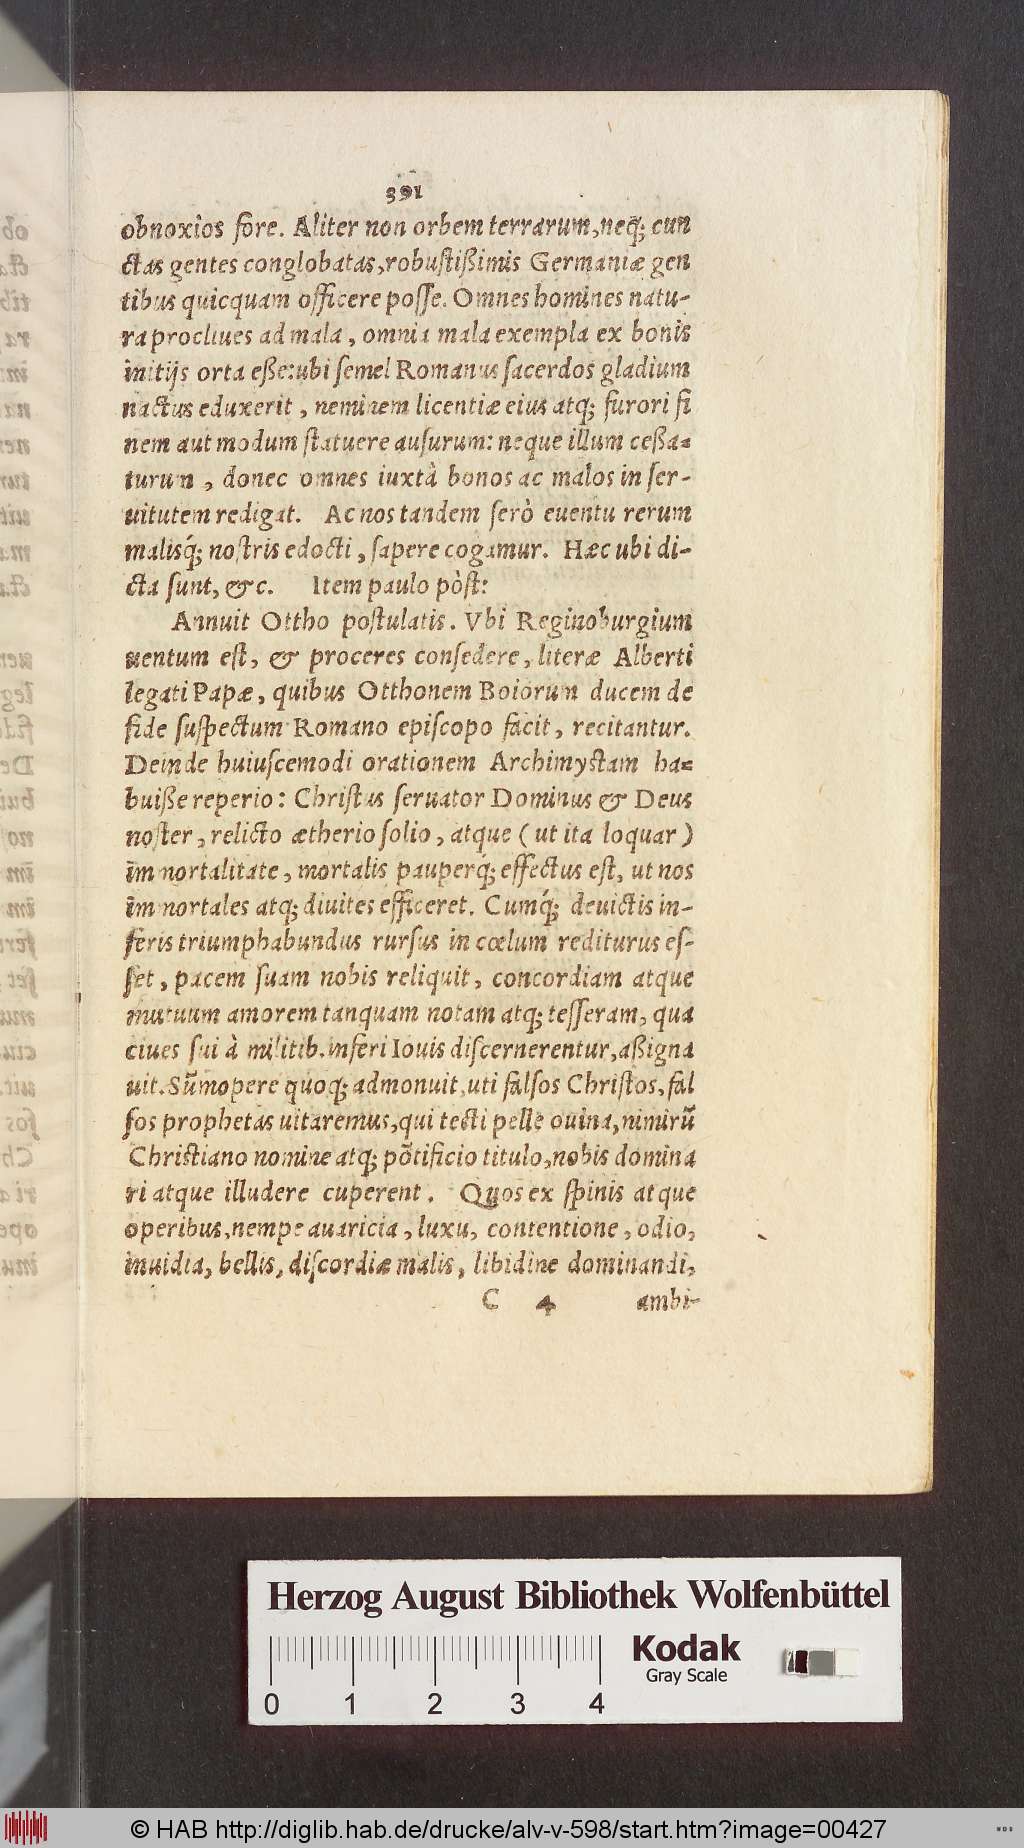 391
obnoxios fore. Aliter non orbem terrarum, neq; cun
ctas gentes conglobatas, robustißimis Germaniæ gen
tibus quicquam officere posse. Omnes homines natu-
ra procliues ad mala, omnia mala exempla ex bonis
initijs orta eße: ubi semel Romanus sacerdos gladium
nactus eduxerit, neminem licentiæ eius atq; furori fi
nem aut modum statuere ausurum: neque illum ceßa=
turum, donec omnes iuxtà bonos ac malos in ser-
uitutem redigat. Ac nos tandem serò euentu rerum
malisq́; nostris edocti, sapere cogamur. Hæc ubi di-
cta sunt, &c. Item paulo pòst:
Annuit Ottho postulatis. Vbi Reginoburgium
uentum est, & proceres consedere, literæ Alberti
legati Papæ, quibus Otthonem Boiorum ducem de
fide suspectum Romano episcopo facit, recitantur.
Deinde huiuscemodi orationem Archimystam ha=
buiße reperio: Christus seruator Dominus & Deus
noster, relicto ætherio solio, atque (ut ita loquar)
im̄ortalitate, mortalis pauperq́; effectus est, ut nos
im̄ortales atq; diuites efficeret. Cumq́; deuictis in-
feris triumphabundus rursus in cœlum rediturus es-
set, pacem suam nobis reliquit, concordiam atque
mutuum amorem tanquam notam atq; tesseram, qua
ciues sui à militib. inferi Iouis discernerentur, aßigna
uit. Sūmopere quoq; admonuit, uti falsos Christos, fal
sos prophetas uitaremus, qui tecti pelle ouina, nimirū
Christiano nomine atq; pōtificio titulo, nobis domina
ri atque illudere cuperent. Quos ex spinis atque
operibus, nempe auaricia, luxu, contentione, odio,
inuidia, bellis, discordiæ malis, libidine dominandi,
C 4 ambi-
Herzog August Bibliothek Wolfenbüttel
Kodak
Gray Scale
0 1 2 3 4
© HAB http://diglib.hab.de/drucke/alv-v-598/start.htm?image=00427